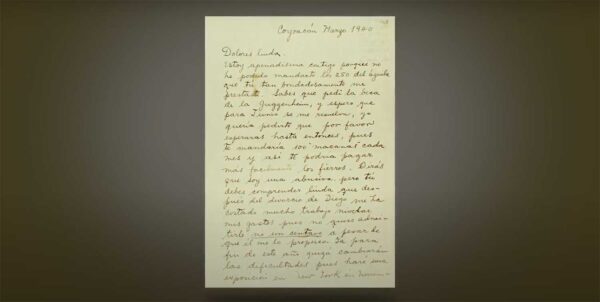 Coyoacán Marzo 1940
Dolores linda.
Estoy apenadísima contigo porque no
he podido mandarte los 250 del águila
que tú tan bondadosamente me
prestaste. Sabes que pedí la beca
de la Guggenheim, y espero que
para Junio se me resuelva, yo
quería pedirte que por favor
esperaras hasta entonces, pues
te mandaría 100 macanas cada
mes y así te podría pagar
más facilmente los fierros. Dirás
que soy una abusiva, pero tú
debes comprender linda que des-
pués del divorcio de Diego me ha
costado mucho trabajo
mis gastos pues no quise admi-
tirle no son centavo a pesar de
que él me lo propuso. Ya para
fin de este año quizá cambiarán
las dificultades pues haré una
exposición en New York en Noviem-